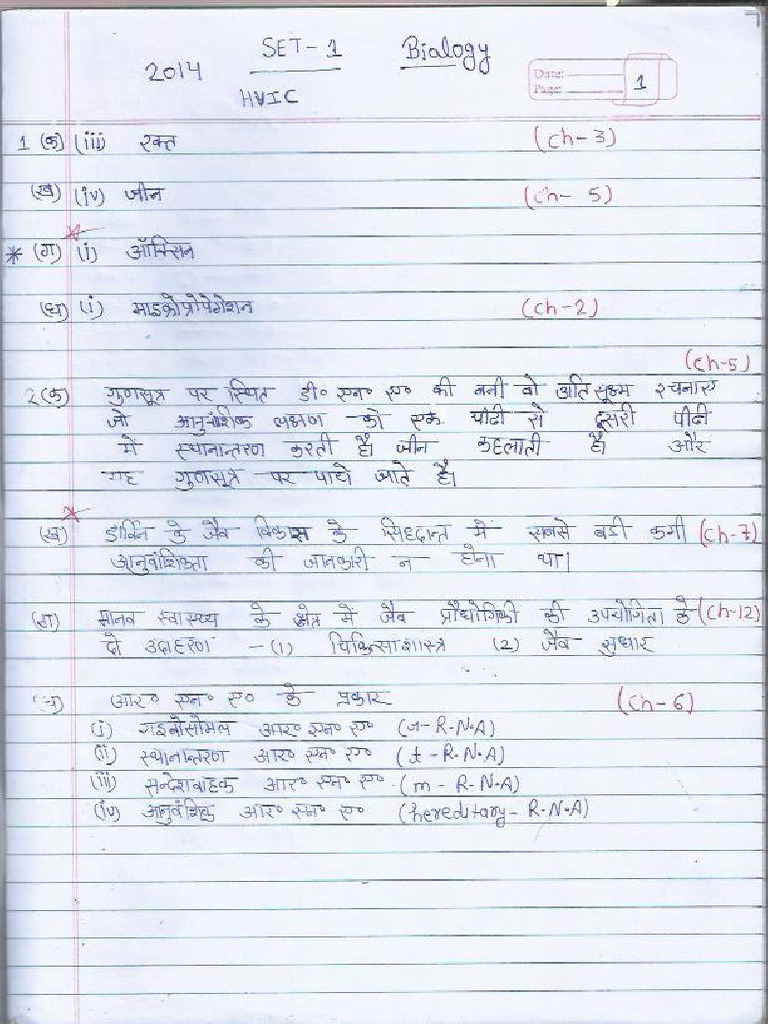 SET-1 Biology
2014
HVIC
Date:
Page: 1
1 (क) (iii) रक्त (Ch-3)
(ख) (iv) जीन (Ch-5)
* (ग) (i) ऑक्सिन
(घ) (i) माइक्रोप्रोपेगेशन (Ch-2)
(Ch-5)
2(क) गुणसूत्र पर स्थित डी० एन० ए० की बनी वो अति सूक्ष्म रचनाए
जो आनुवंशिक लक्षण को एक पीढी से दूसरी पीढी
में स्थानान्तरण करती है। जीन कहलाती है। और
यह गुणसूत्र पर पाये जाते है।
(ख) डार्विन के जैव विकास के सिद्धान्त में सबसे बडी कमी (Ch-7)
आनुवांशिकता की जानकारी न होना था।
(ग) मानव स्वास्थ्य के क्षेत्र में जैव प्रौद्योगिकी की उपयोगिता के (Ch-12)
दो उदाहरण - (1) चिकित्साशास्त्र (2) जैव सुधार
(घ) आर० एन० ए० के प्रकार (Ch-6)
(i) राइबोसोमल आर० एन० ए० (r-R.N.A)
(ii) स्थानान्तरण आर० एन० ए० (t-R.N.A)
(iii) सन्देशवाहक आर० एन० ए० (m-R.N.A)
(iv) आनुवंशिक आर० एन० ए० (hereditary-R.N.A)